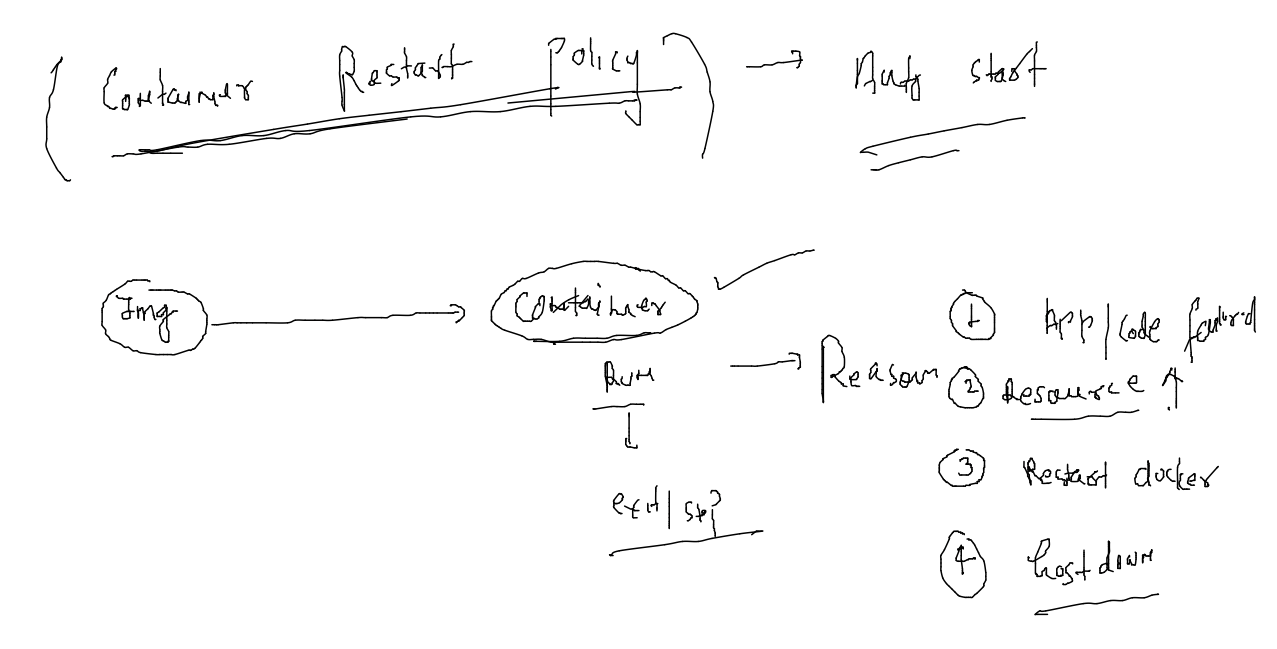 ( Container Restart Policy ) → Auto start
Img → Container
Run → Reason
exit / stop
1 App / code failured
2 Resource ↑
3 Restart docker
4 host down